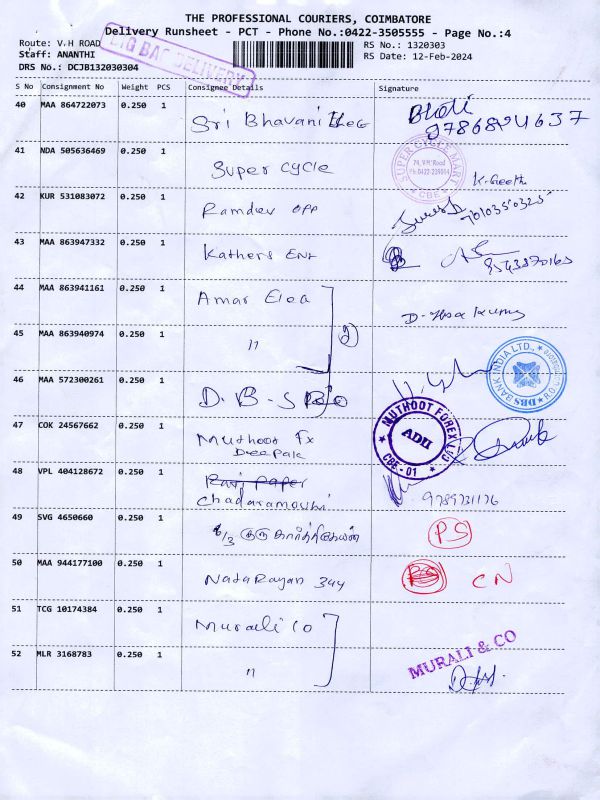 THE PROFESSIONAL COURIERS, COIMBATORE
Delivery Runsheet - PCT - Phone No.:0422-3505555 - Page No.:4
Route: V.H ROAD
RS No.: 1320303
Staff: ANANTHI
RS Date: 12-Feb-2024
DRS No.: DCJB132030304
BIG BAG DELIVERY
S No Consignment No Weight PCS Consignee Details Signature
40 MAA 864722073 0.250 1 Sri Bhavani
9786824637
41 NDA 505636469 0.250 1 Super cycle
SUPER CYCLE MART
74, V.H. Road
CBE
K. Geetha
42 KUR 531083072 0.250 1 Ramdev opp
7010350325
43 MAA 863947332 0.250 1 Kathers Ent
44 MAA 863941161 0.250 1 Amar Elea
45 MAA 863940974 0.250 1 "
2)
46 MAA 572300261 0.250 1 D.B-S
DBS BANK INDIA LTD.,
47 COK 24567662 0.250 1 Muthoot Fx
Deepak
MUTHOOT FOREX LLC
ADII
CBE - 01
48 VPL 404128672 0.250 1 Ravi paper
Chadaramouhi
9789731176
49 SVG 4650660 0.250 1 குரு கார்த்திகேயன்
PS
50 MAA 944177100 0.250 1 NataRayan 344
CN
51 TCG 10174384 0.250 1 Murali co
52 MLR 3168783 0.250 1 "
MURALI & CO